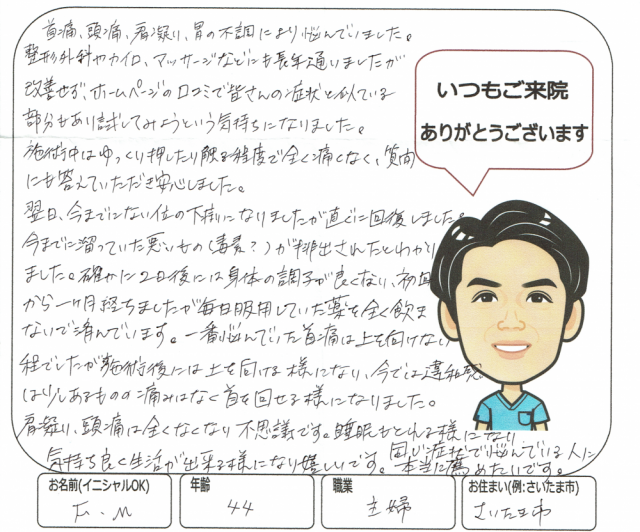 首痛、頭痛、肩凝り、胃の不調により悩んでいました。
整形外科やカイロ、マッサージなどにも長年通いましたが
改善せず、ホームページの口コミで皆さんの症状と似ている
部分もあり試してみようという気持ちになりました。
施術中はゆっくり押したり触る程度で全く痛くなく、質問
にも答えていただき安心しました。
翌日、今までにない位の下痢になりましたが直ぐに回復しました。
今までに溜っていた悪いもの(毒素?)が排出されたとわかり
ました。確かに2日後には身体の調子が良くない、初回
から一ヶ月経ちましたが毎日服用していた薬を全く飲ま
ないで済んでいます。一番悩んでいた首痛は上を向けない
程でしたが施術後には上を向ける様にない、今では違和感
は少しあるものの痛みはなく首を回せる様になりました。
肩凝り、頭痛は全くなくなり不思議です。睡眠もとれる様になり
気持ち良く生活が出来る様になり嬉しいです。同じ症状で悩んでいる人に
本当に薦めたいです。
いつもご来院
ありがとうございます
お名前(イニシャルOK) 年齢 職業 お住まい(例:さいたま市)
F.M 44 主婦 さいたま市